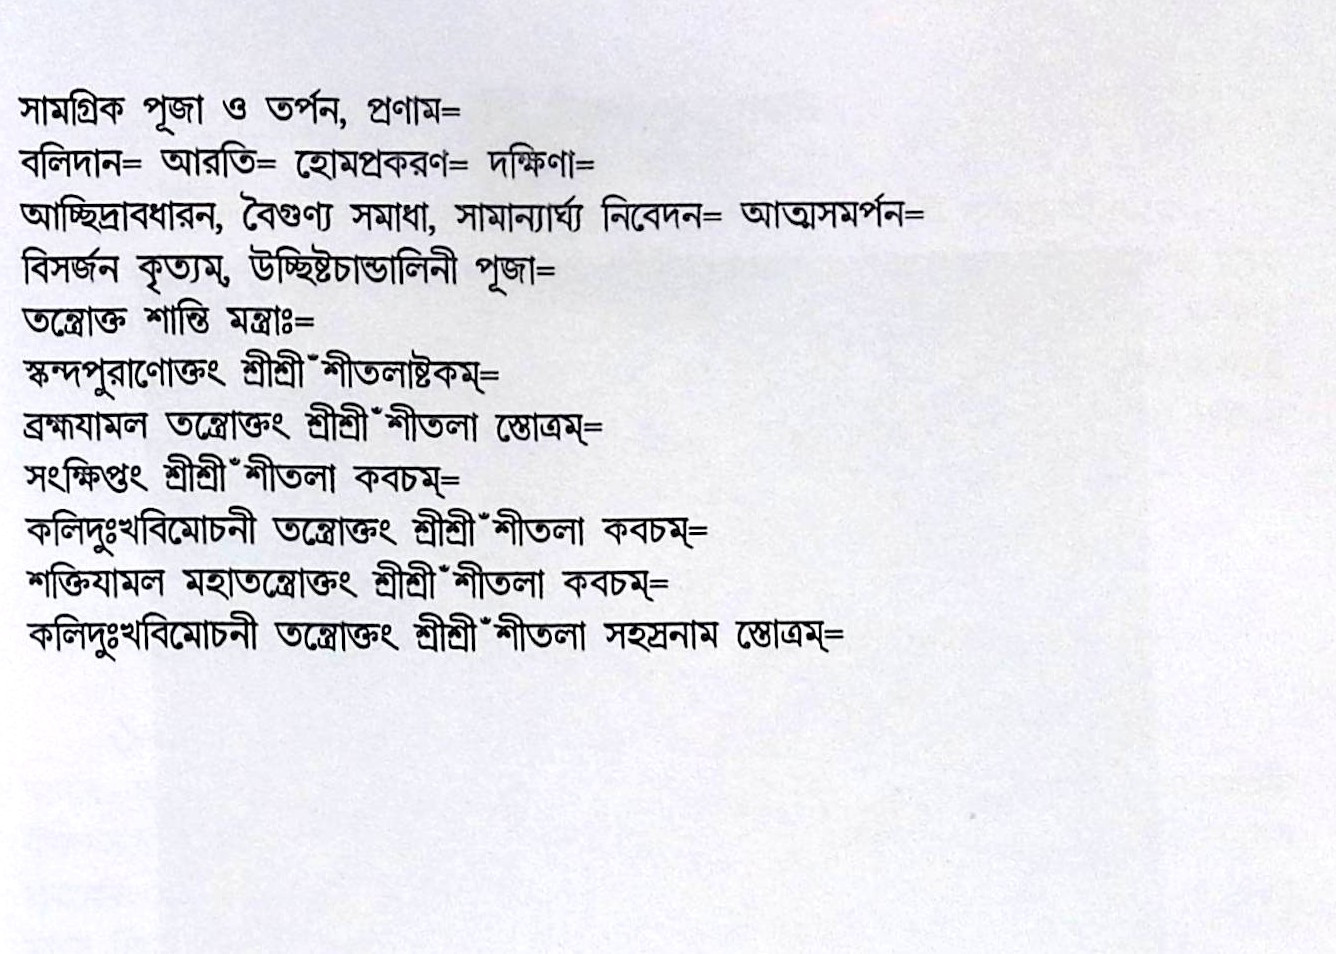 সামগ্রিক পূজা ও তর্পন, প্রণাম=
বলিদান= আরতি= হোমপ্রকরণ= দক্ষিণা=
আচ্ছিদ্রাবধারন, বৈগুণ্য সমাধা, সামান্যার্ঘ্য নিবেদন= আত্মসমর্পন=
বিসর্জন কৃত্যম্, উচ্ছিষ্টচান্ডালিনী পূজা=
তন্ত্রোক্ত শান্তি মন্ত্রাঃ=
স্কন্দপুরাণোক্তং শ্রীশ্রীঁশীতলাষ্টকম্=
ব্রহ্মযামল তন্ত্রোক্তং শ্রীশ্রীঁশীতলা স্তোত্রম্=
সংক্ষিপ্তং শ্রীশ্রীঁশীতলা কবচম্=
কলিদুঃখবিমোচনী তন্ত্রোক্তং শ্রীশ্রীঁশীতলা কবচম্=
শক্তিযামল মহাতন্ত্রোক্তং শ্রীশ্রীঁশীতলা কবচম্=
কলিদুঃখবিমোচনী তন্ত্রোক্তং শ্রীশ্রীঁশীতলা সহস্রনাম স্তোত্রম্=